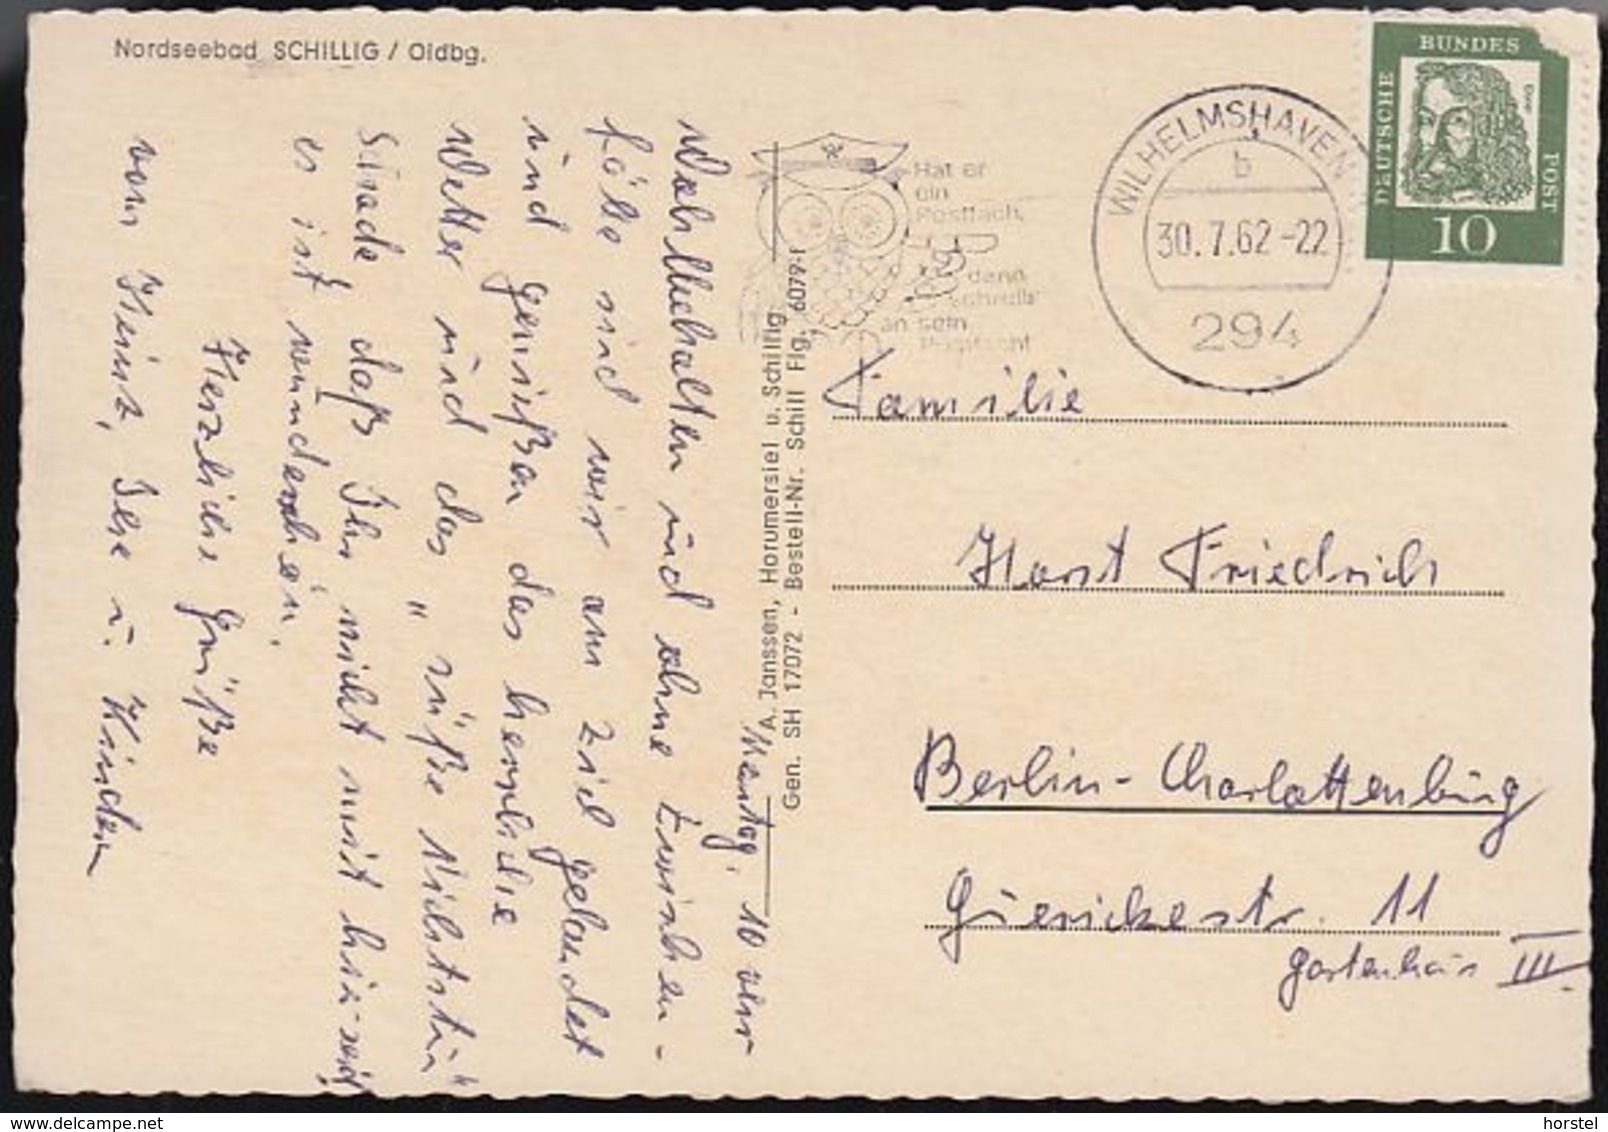 Nordseebad SCHILLIG / Oldbg.
Montag, 10 Uhr
Wohlbehalten und ohne Zwischen-
fälle sind wir am Ziel gelandet
und genießen das herrliche
Wetter und das „süße Nichtstun“
Schade, daß Ihr nicht mit hier seid,
es ist wunderschön.
Herzliche Grüße
von Heinz, Ilse u. Kindern
A. Janssen, Horumersiel u. Schillig
Gen. SH 17072 - Bestell-Nr. Schill Flg. 6079-1
Hat er
ein
Postfach,
dann
schreib
an sein
Postfach!
WILHELMSHAVEN
b
30.7.62-22
294
DEUTSCHE
BUNDES
POST
Dürer
10
Familie
Horst Friedrich
Berlin-Charlottenburg
Gierickestr. 11
Gartenhaus III.
delcampe.net
horstel